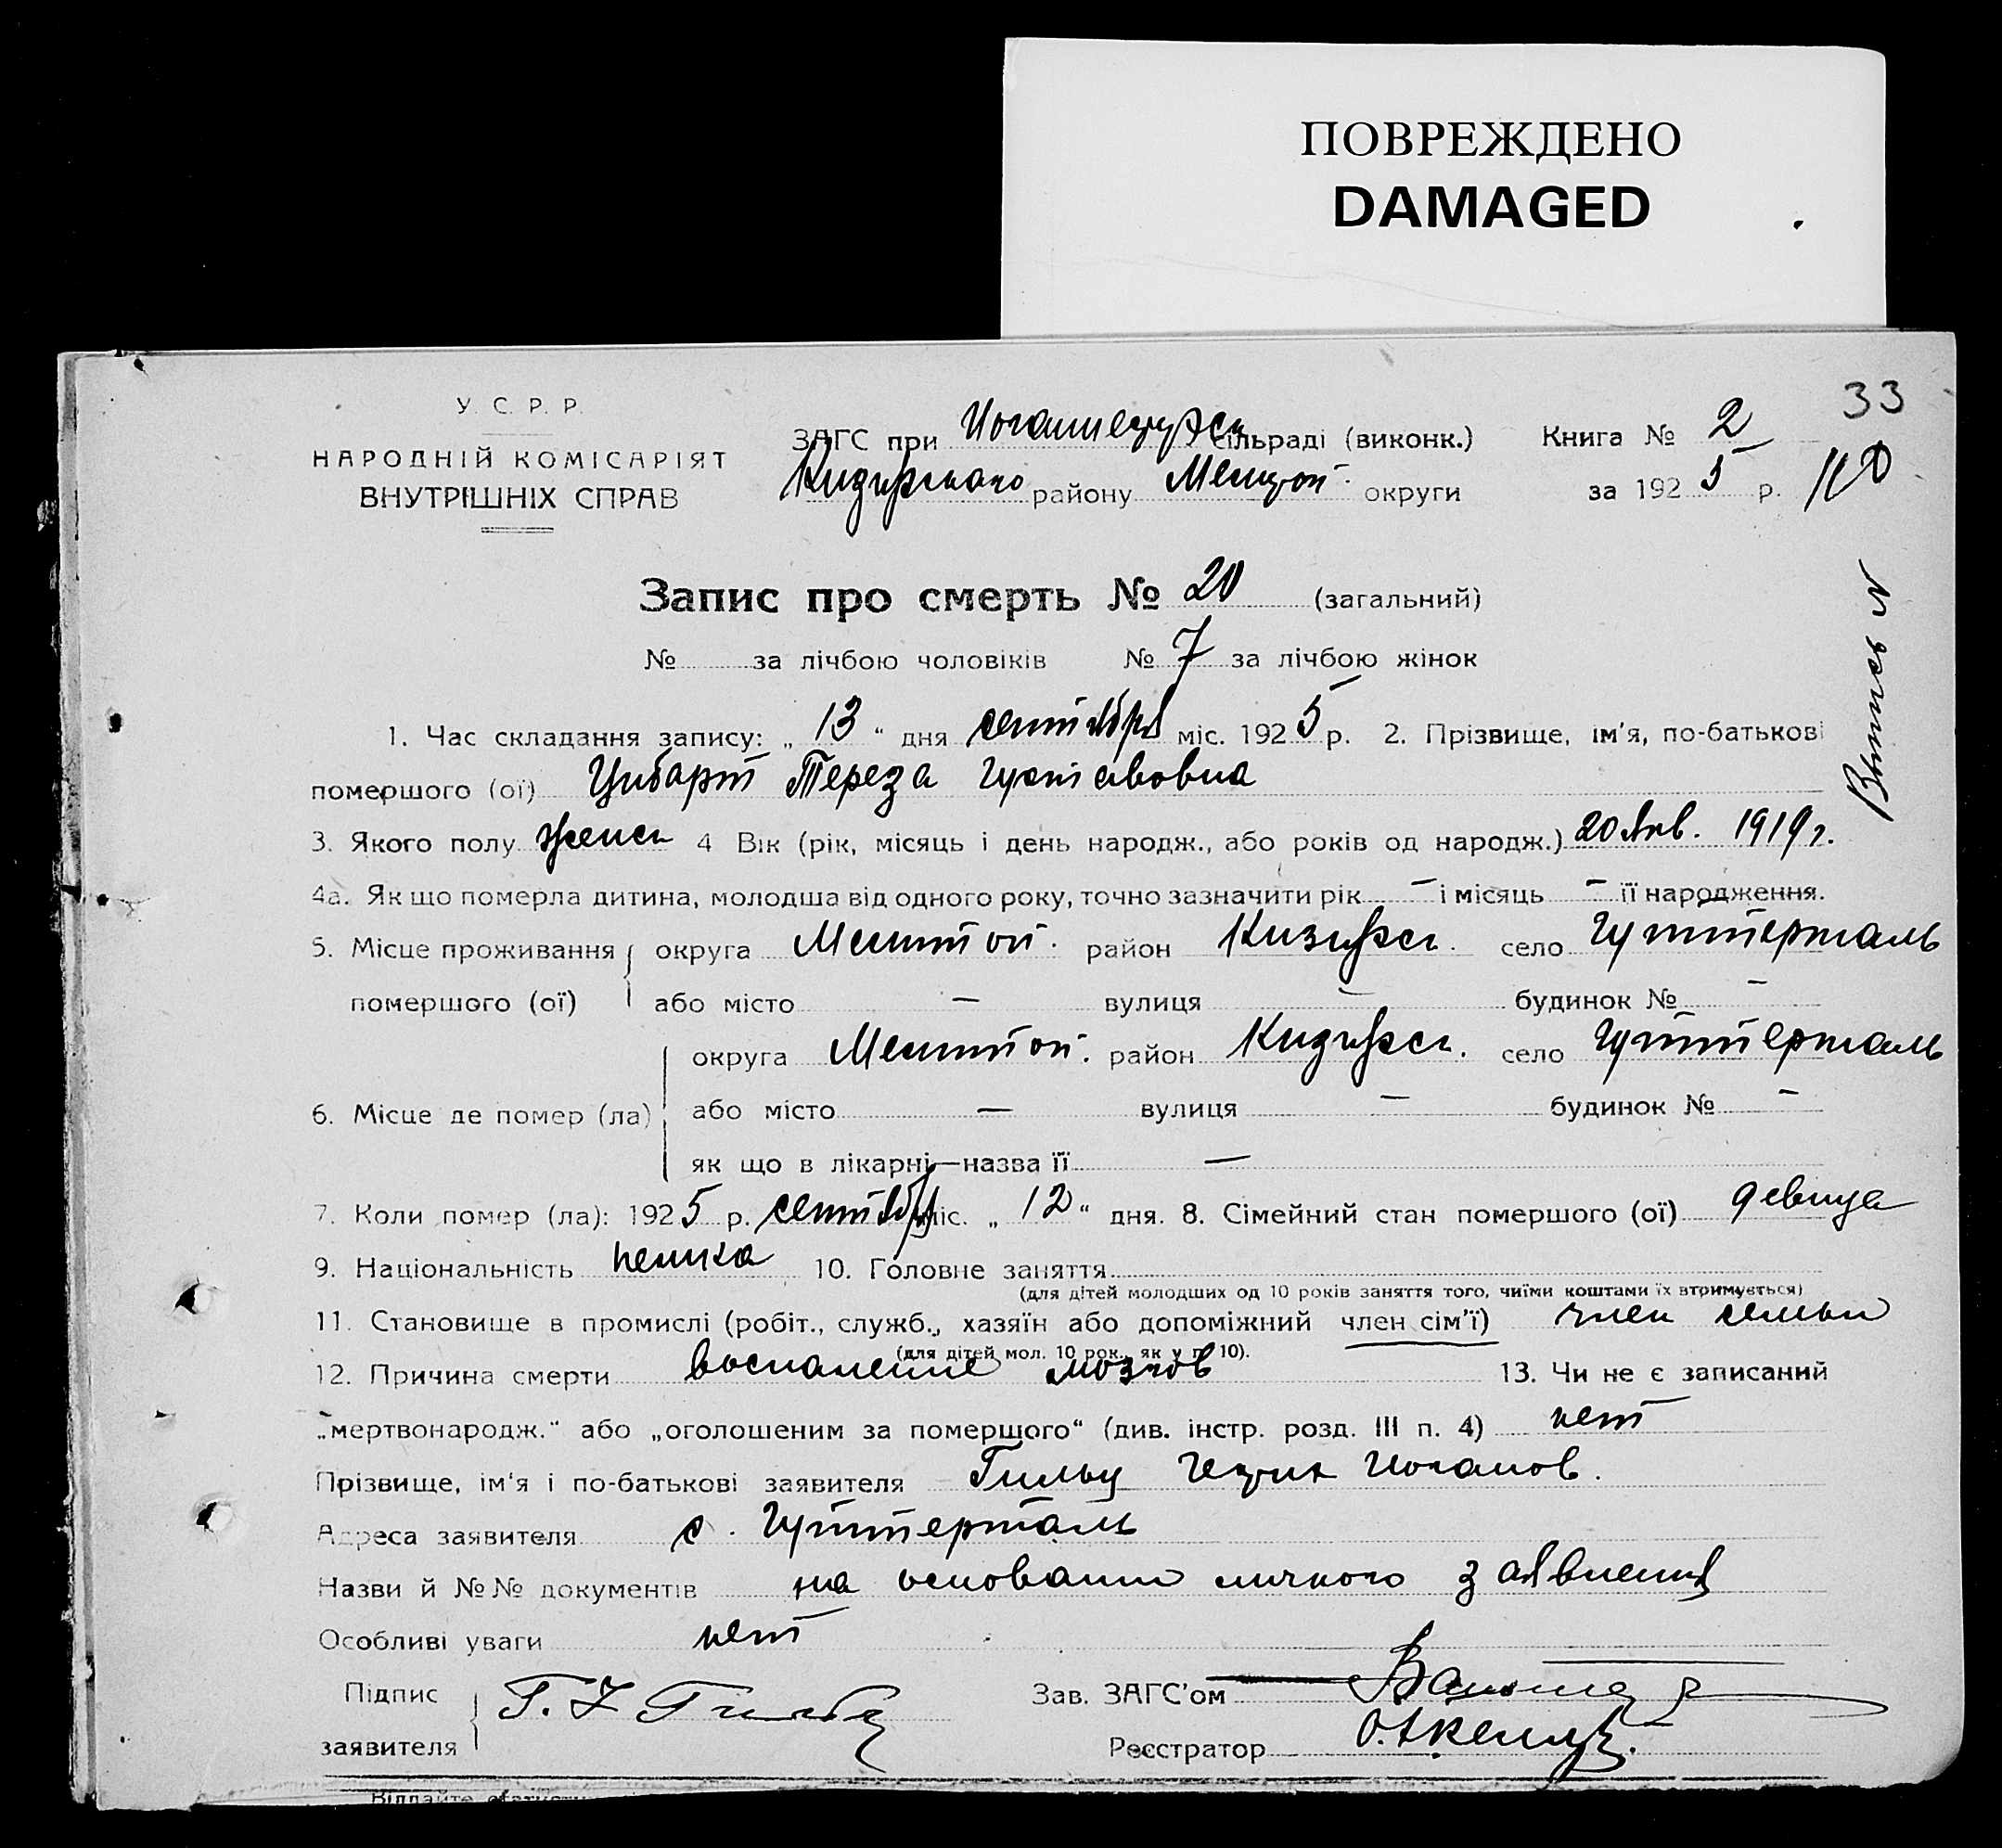 ПОВРЕЖДЕНО
DAMAGED
33
У. С. Р. Р.
НАРОДНІЙ КОМІСАРІЯТ
ВНУТРІШНІХ СПРАВ
ЗАГС при сільраді (виконк.) Книга № 2
району округи за 1925 р.
Запис про смерть № 20 (загальний)
№ за лічбою чоловіків № 7 за лічбою жінок
Выпись N
1. Час складання запису: „13“ дня сентября міс. 1925 р. 2. Прізвище, ім'я, по-батькові
помершого (ої) Цибарт Тереза Густавовна
3. Якого полу женск 4 Вік (рік, місяць і день народж., або років од народж.) 20 Янв. 1919 г.
4а. Як що померла дитина, молодша від одного року, точно зазначити рік – і місяць – її народження.
5. Місце проживання округа Мелитоп. район Кизиярск. село Гуттерталь
помершого (ої) або місто – вулиця – будинок № –
округа Мелитоп. район Кизиярск. село Гуттерталь
6. Місце де помер (ла) або місто – вулиця – будинок № –
як що в лікарні—назва її –
7. Коли помер (ла): 1925 р. сентября міс. „12“ дня. 8. Сімейний стан помершого (ої) девица
9. Національність немка 10. Головне заняття
(для дітей молодших од 10 років заняття того, чиїми коштами їх втримується)
11. Становище в промислі (робіт., служб., хазяїн або допоміжний член сім'ї) член семьи
(для дітей мол. 10 рок., як у п. 10).
12. Причина смерти воспаление мозгов 13. Чи не є записаний
„мертвонародж.“ або „оголошеним за помершого“ (див. інстр. розд. III п. 4) нет
Прізвище, ім'я і по-батькові заявителя Гильц
Адреса заявителя с. Гуттерталь
Назви й №№ документів на основании личного заявления
Особливі уваги нет
Підпис Зав. ЗАГС'ом
заявителя Реєстратор